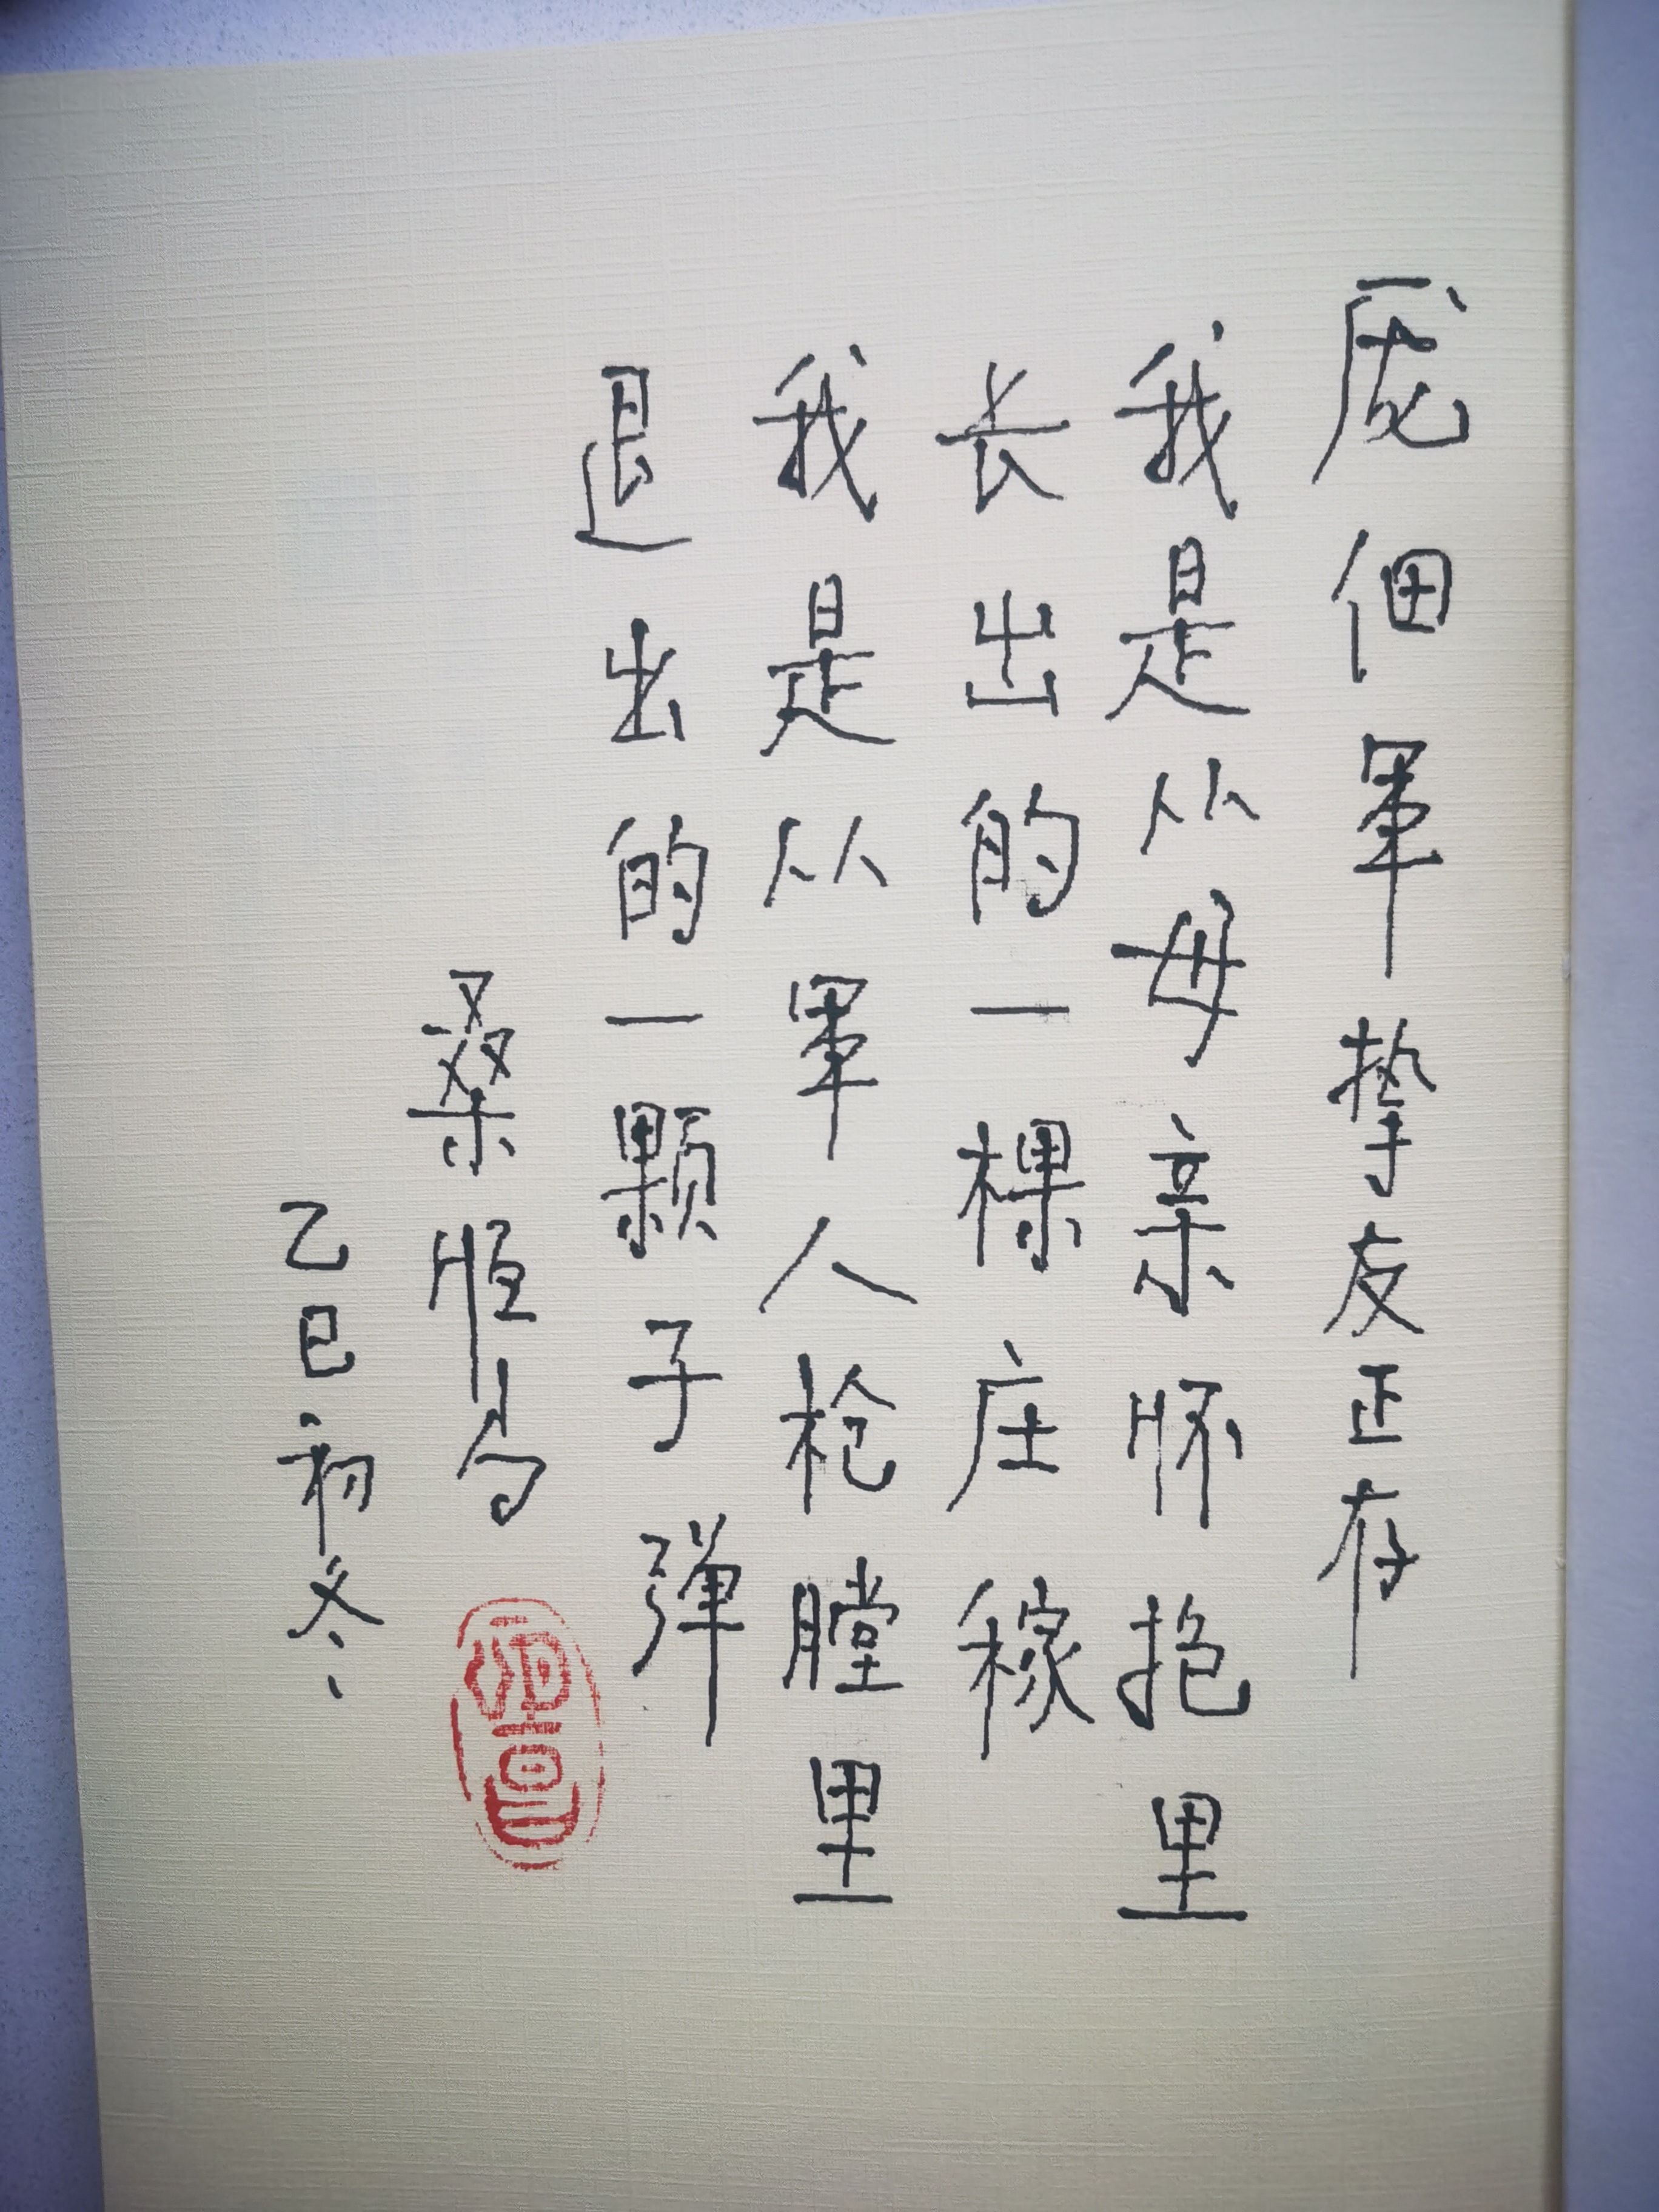 庞佃軍挚友正存
我是从母亲怀抱里
长出的一棵庄稼
我是从軍人枪膛里
退出的一颗子弹
桑恒昌
乙巳初冬